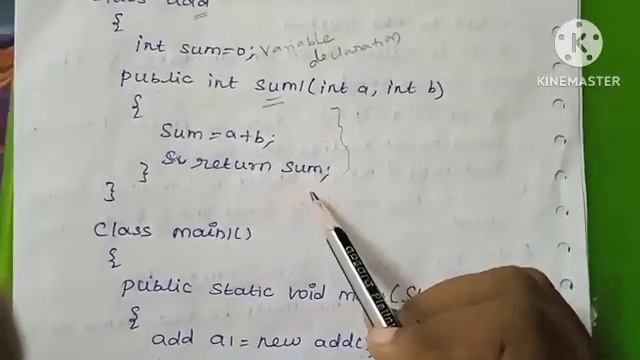 class add
{
int sum=0; variable
declaration
public int sum1(int a, int b)
{
sum=a+b;
return sum;
}
}
class main1()
{
public static void m (S
{
add a1 = new add(
KINEMASTER
apsara platinum